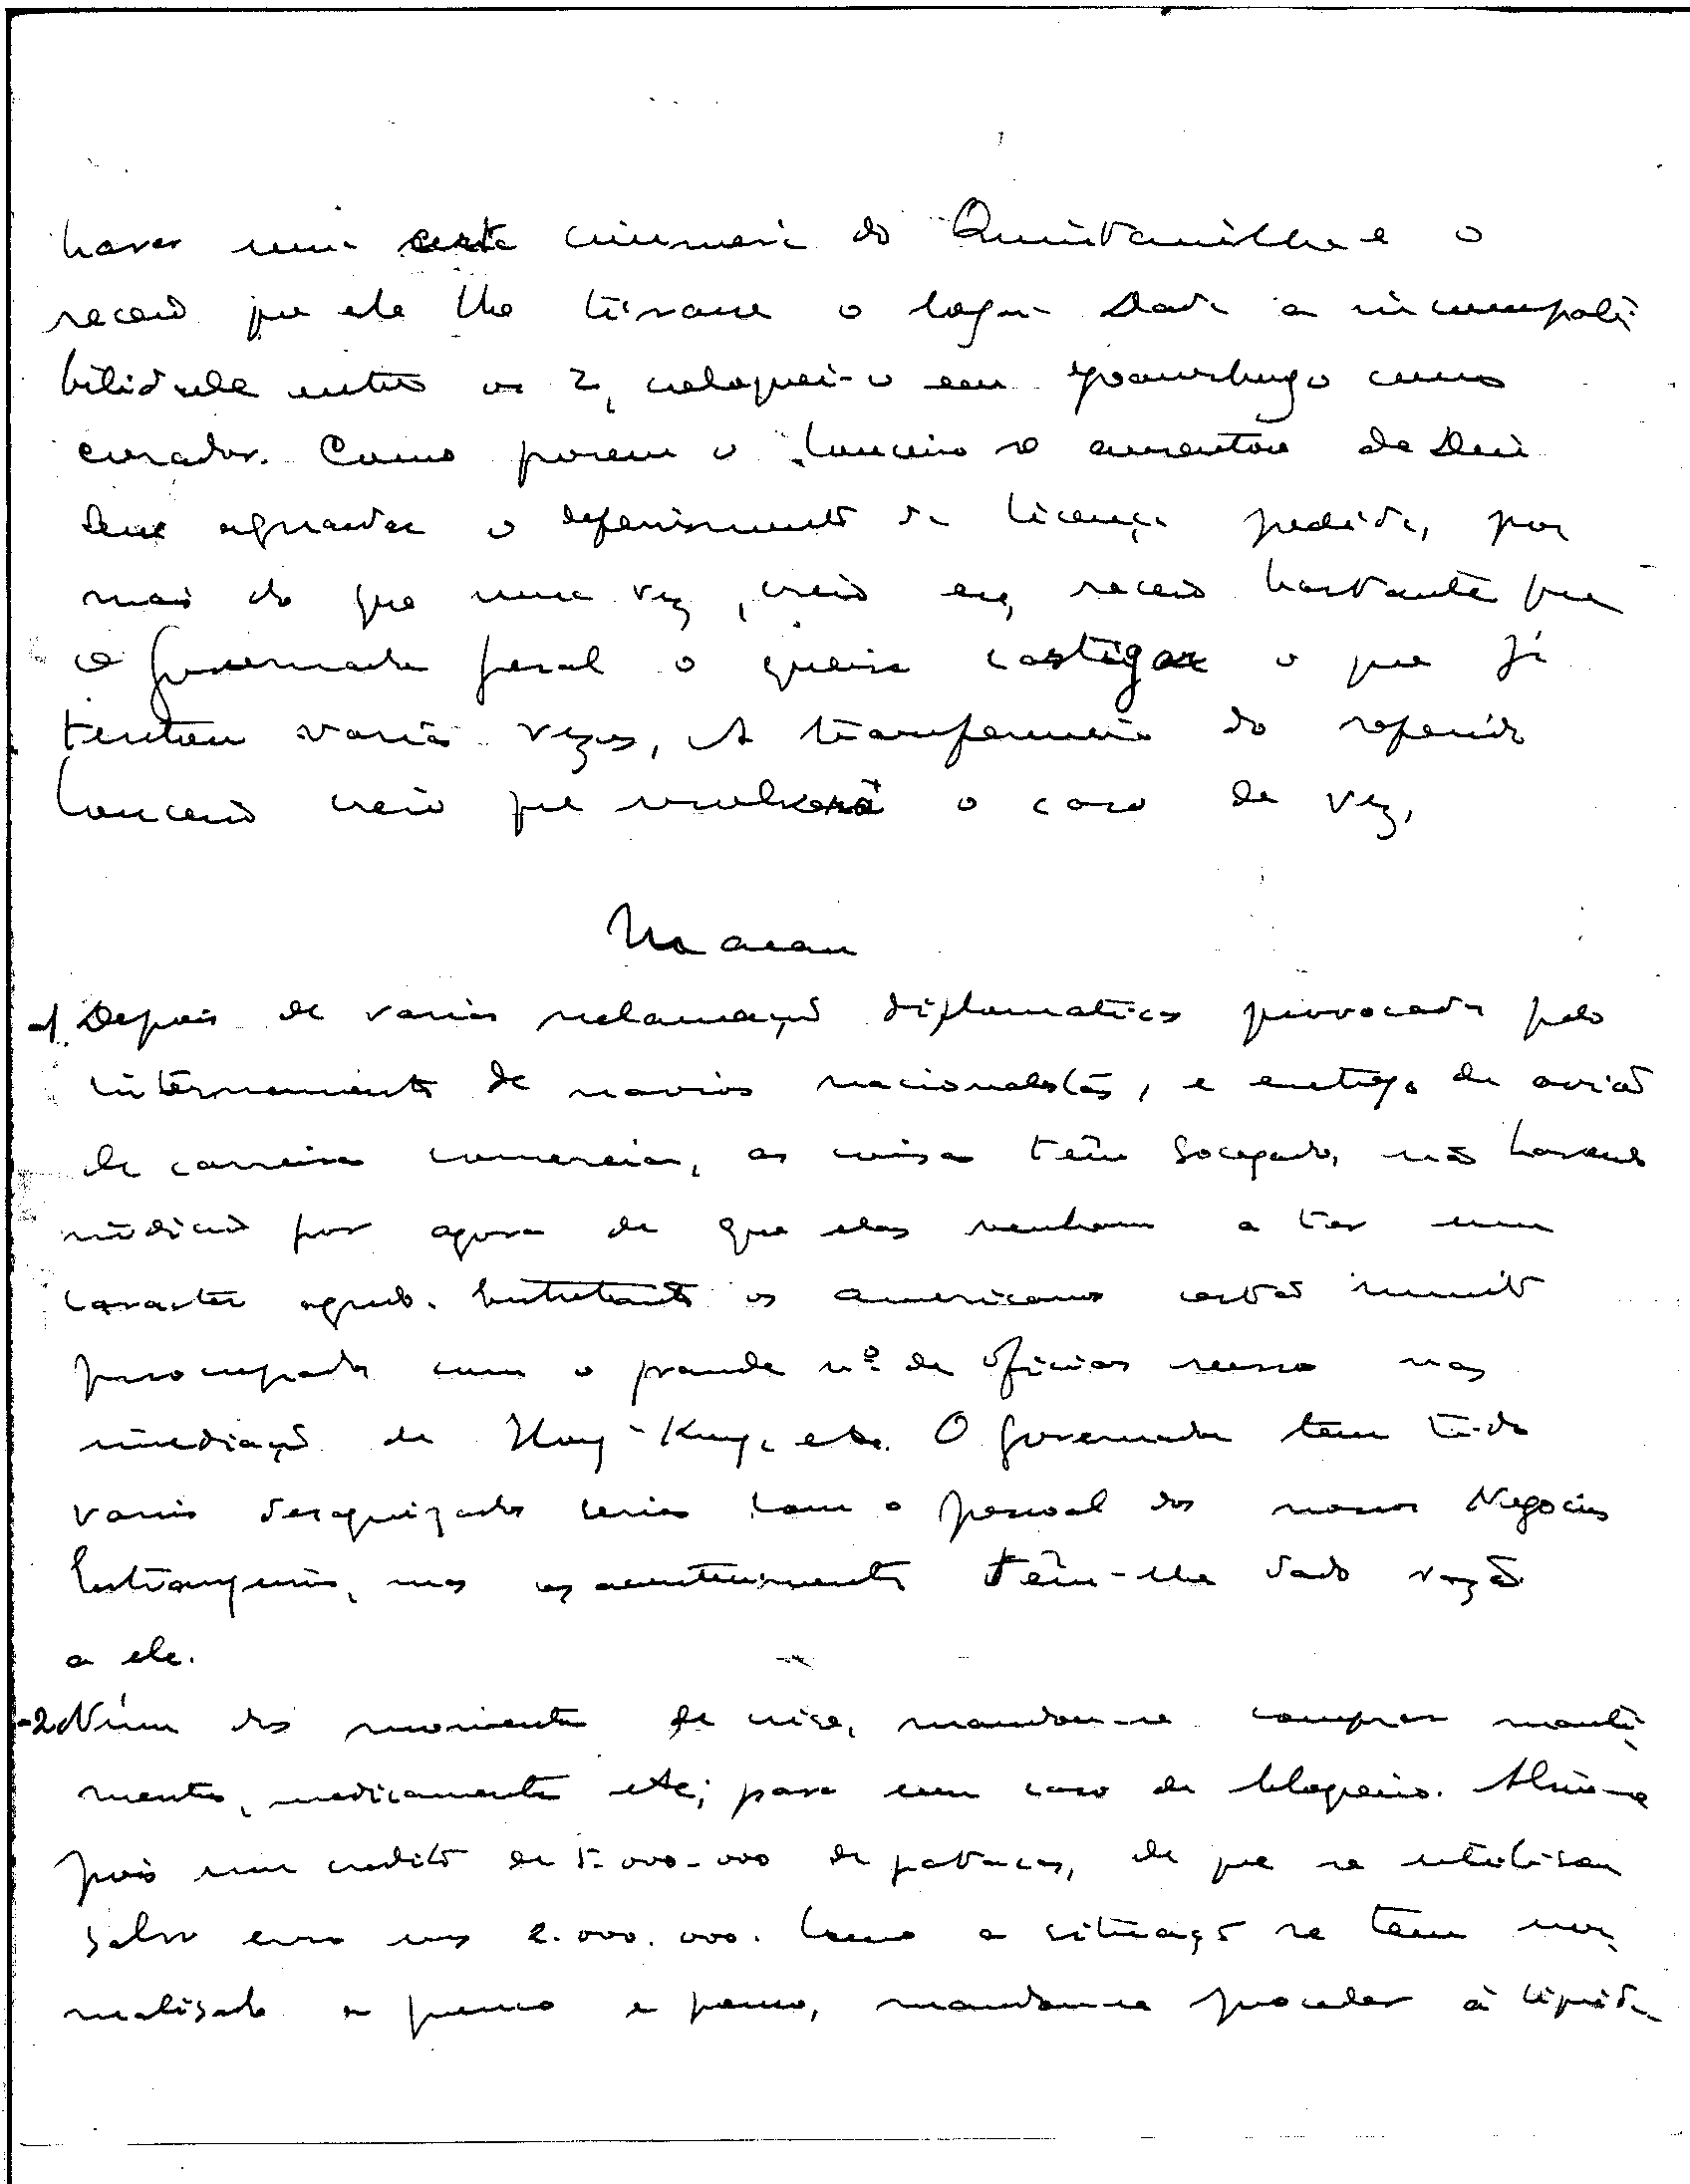 haver uma certa ciumeira do Quintanilha e o
receio que ele lhe tirasse o lugar. Dada a incompati-
bilidade entre os 2, coloquei-o em Joanesburgo como
curador. Como porem o Lanceiro se ausentou de Deli
sem aguardar o deferimento da licença pedida, por
mais do que uma vez, creio eu, receio bastante que
o Governador geral o queira castigar o que já
tentou varias vezes. A transferencia do referido
Lanceiro creio que resolverá o caso de vez.
Macau
Depois de varias reclamações diplomaticas provocadas pelo
internamento de navios nacionalistas, e entrega de aviões
de carreiras comerciais, as coisas têm socegado, não havendo
indicio por agora de que elas venham a ter um
caracter agudo. Entretanto os americanos estão muito
preocupados com o grande nº de oficiais russos nas
imediações de Hong-Kong, etc. O Governador tem tido
varios desaguizados serios com o pessoal dos nossos Negocios
Estrangeiros, mas os acontecimentos têm-lhe dado razão
a ele.
-2 Num dos momentos de crise, mandou-se comprar manti-
mentos, medicamentos etc; para um caso de bloqueio. Abriu-se
pois um credito de 5.000.000 de patacas, de que se utilisou
salvo erro uns 2.000.000. Como a situação se tem nor-
malisado a pouco e pouco, mandou-se proceder à liquida-